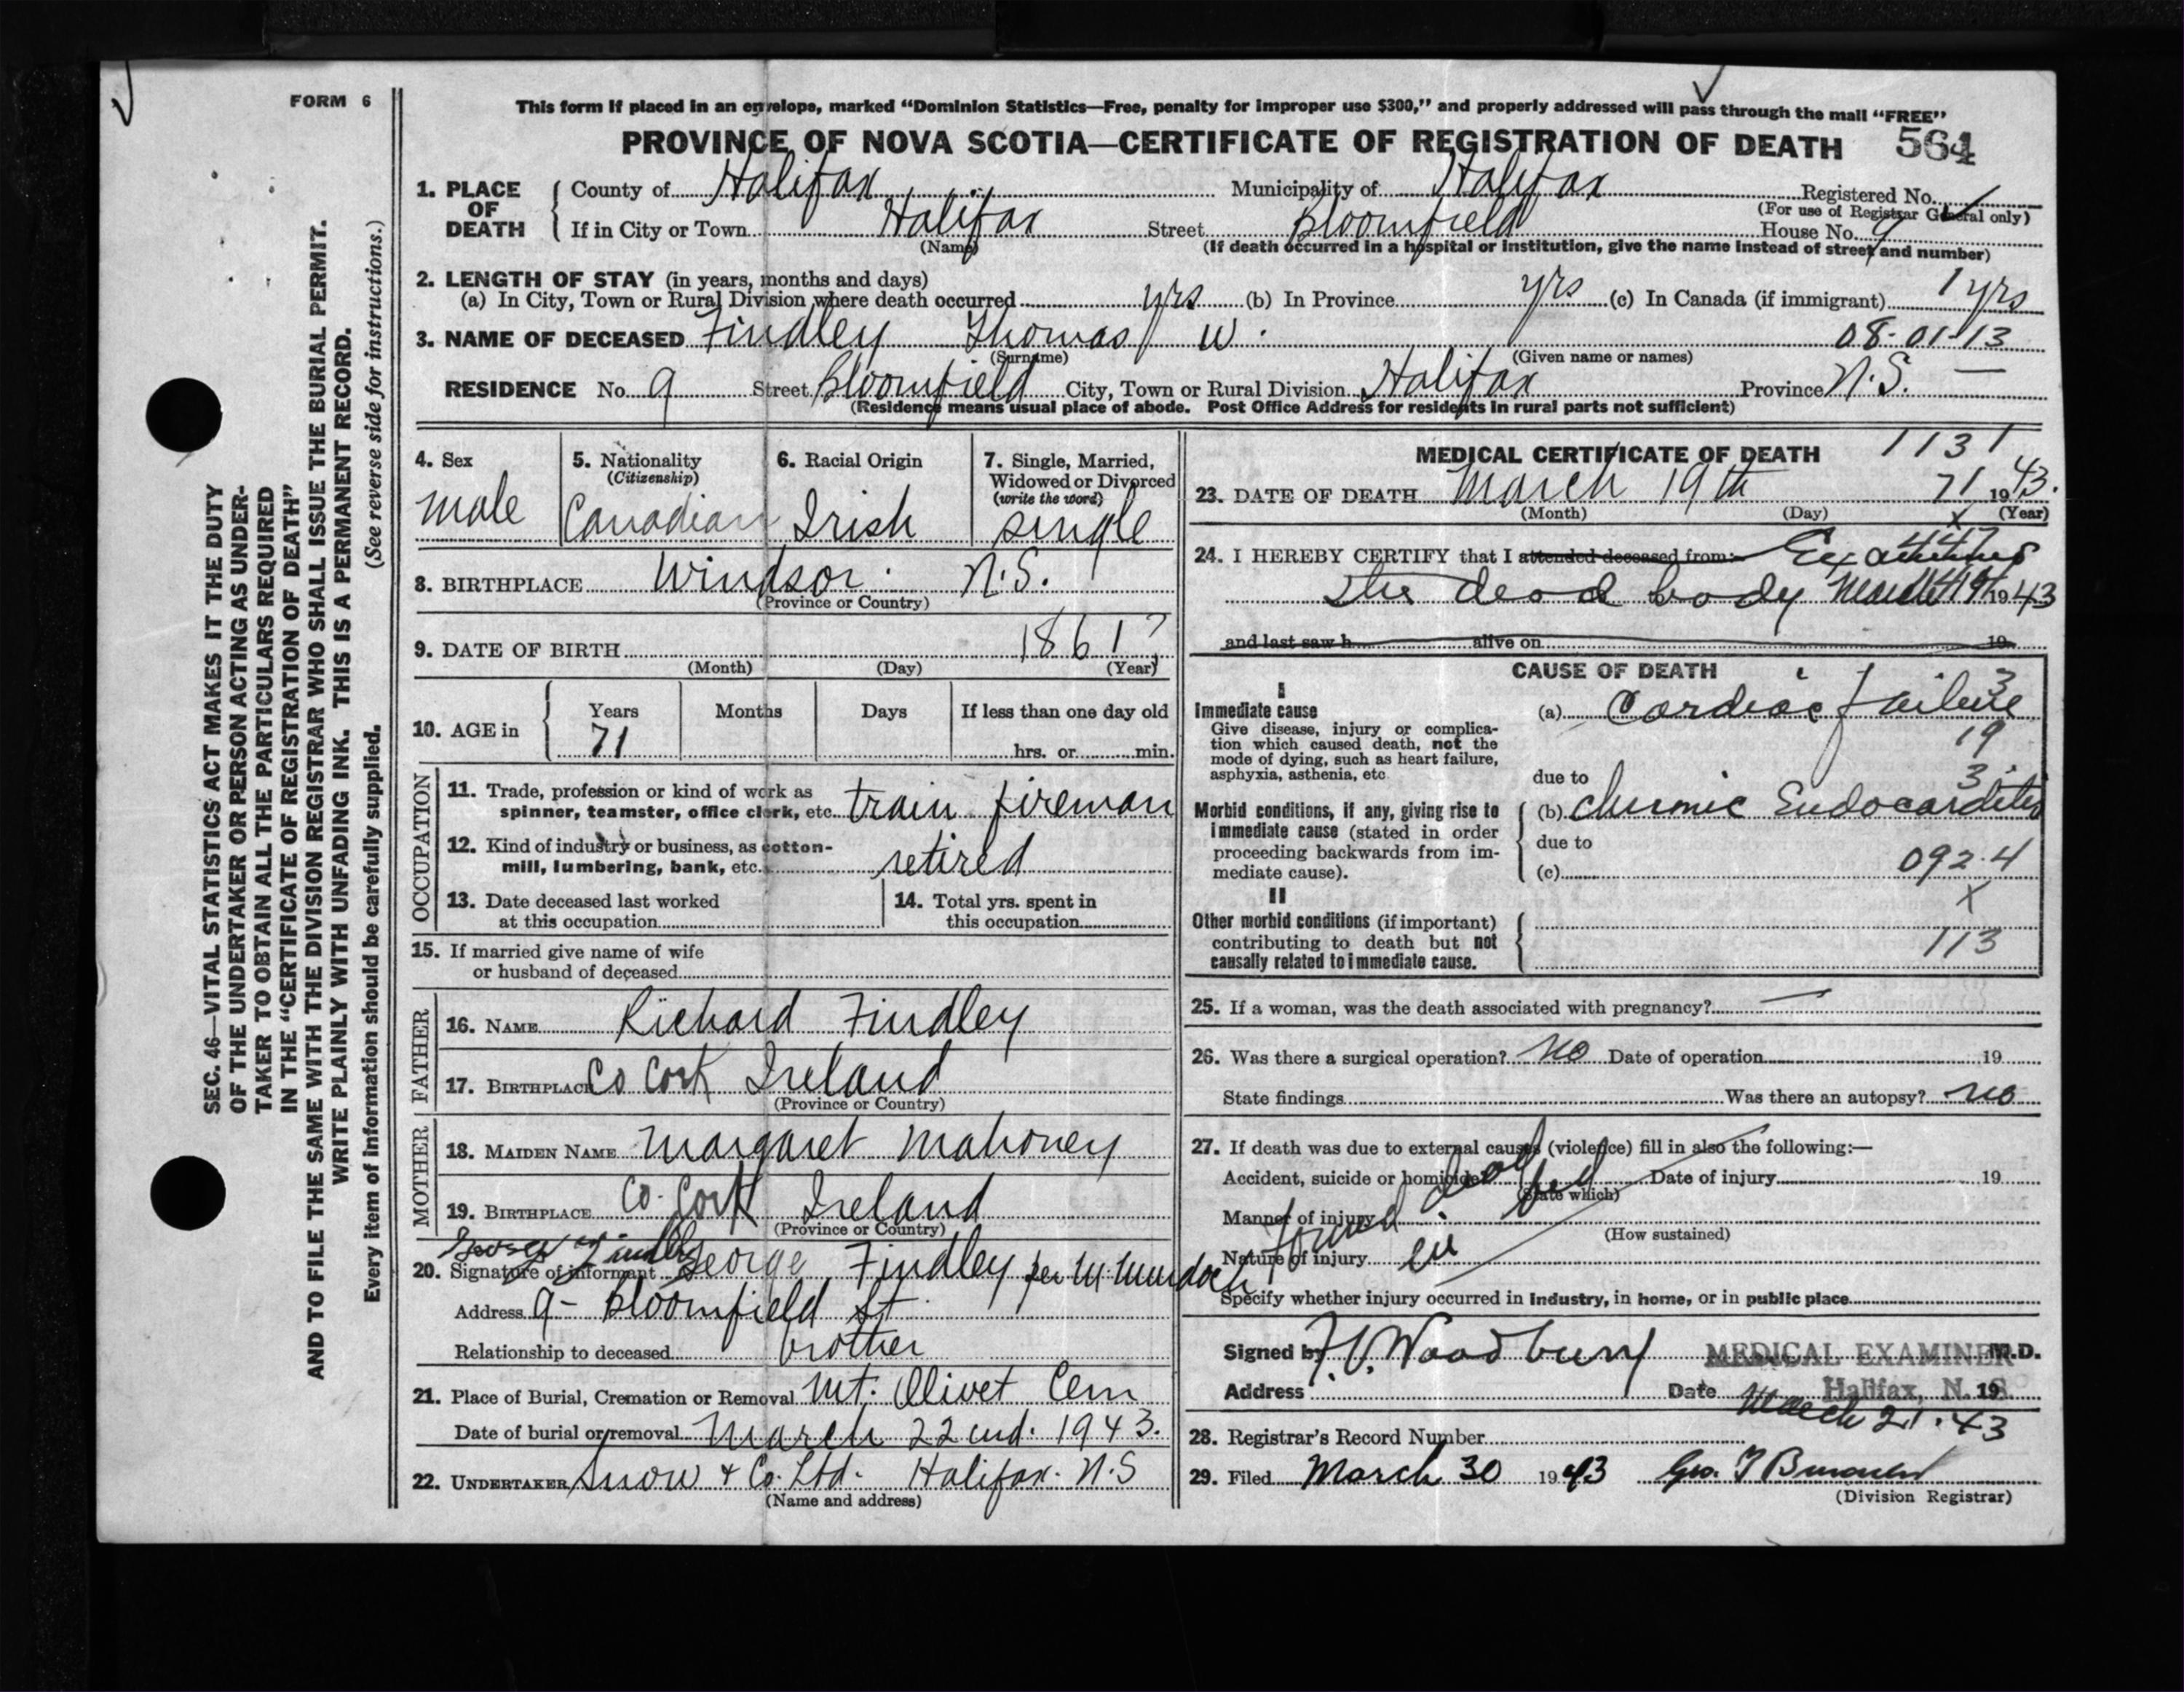 FORM 6
SEC. 46—VITAL STATISTICS ACT MAKES IT THE DUTY
OF THE UNDERTAKER OR PERSON ACTING AS UNDER-
TAKER TO OBTAIN ALL THE PARTICULARS REQUIRED
IN THE "CERTIFICATE OF REGISTRATION OF DEATH"
AND TO FILE THE SAME WITH THE DIVISION REGISTRAR WHO SHALL ISSUE THE BURIAL PERMIT.
WRITE PLAINLY WITH UNFADING INK. THIS IS A PERMANENT RECORD.
Every item of information should be carefully supplied. (See reverse side for instructions.)
This form if placed in an envelope, marked "Dominion Statistics—Free, penalty for improper use $300," and properly addressed will pass through the mail "FREE"
PROVINCE OF NOVA SCOTIA—CERTIFICATE OF REGISTRATION OF DEATH 564
1. PLACE OF DEATH County of Halifax Municipality of Halifax Registered No.
(For use of Registrar General only)
If in City or Town Halifax Street Bloomfield House No. 9
(Name) (If death occurred in a hospital or institution, give the name instead of street and number)
2. LENGTH OF STAY (in years, months and days)
(a) In City, Town or Rural Division where death occurred yrs (b) In Province yrs (c) In Canada (if immigrant) yrs
3. NAME OF DECEASED Findley Thomas W. 08-01-13
(Surname) (Given name or names)
RESIDENCE No. 9 Street Bloomfield City, Town or Rural Division Halifax Province N.S. —
(Residence means usual place of abode. Post Office Address for residents in rural parts not sufficient)
4. Sex male
5. Nationality (Citizenship) Canadian
6. Racial Origin Irish
7. Single, Married, Widowed or Divorced (write the word) single
8. BIRTHPLACE Windsor. N.S.
(Province or Country)
9. DATE OF BIRTH 1861?
(Month) (Day) (Year)
10. AGE in Years 71 Months Days If less than one day old
hrs. or min.
OCCUPATION
11. Trade, profession or kind of work as
spinner, teamster, office clerk, etc. train fireman
12. Kind of industry or business, as cotton-
mill, lumbering, bank, etc. retired
13. Date deceased last worked
at this occupation
14. Total yrs. spent in
this occupation
15. If married give name of wife
or husband of deceased
FATHER
16. NAME Richard Findley
17. BIRTHPLACE Co Cork Ireland
(Province or Country)
MOTHER
18. MAIDEN NAME Margaret Mahoney
19. BIRTHPLACE Co. Cork Ireland
(Province or Country)
20. Signature of informant George Findley per M Murdoch
Address 9- Bloomfield St.
Relationship to deceased brother
21. Place of Burial, Cremation or Removal Mt. Olivet Cem
Date of burial or removal March 22nd. 1943.
22. UNDERTAKER Snow & Co. Ltd. Halifax. N.S
(Name and address)
MEDICAL CERTIFICATE OF DEATH 1131
23. DATE OF DEATH March 19th 71 1943.
(Month) (Day) (Year)
24. I HEREBY CERTIFY that I attended deceased from:
the dead body March 19 1943
and last saw h alive on 19
CAUSE OF DEATH
I
Immediate cause
Give disease, injury or complica-
tion which caused death, not the
mode of dying, such as heart failure,
asphyxia, asthenia, etc.
(a) Cardiac failure
3
19
3
due to
Morbid conditions, if any, giving rise to
immediate cause (stated in order
proceeding backwards from im-
mediate cause).
(b) Chronic Endocarditis
due to
(c) 092.4
X
II
Other morbid conditions (if important)
contributing to death but not
causally related to immediate cause.
113
25. If a woman, was the death associated with pregnancy? —
26. Was there a surgical operation? No Date of operation 19
State findings Was there an autopsy? no
27. If death was due to external causes (violence) fill in also the following:—
Accident, suicide or homicide? Date of injury 19
(State which)
Manner of injury
(How sustained)
Nature of injury
found dead in bed
Specify whether injury occurred in industry, in home, or in public place
Signed by Woodbury MEDICAL EXAMINER M.D.
Address Date Halifax, N. S 19
March 21. 43
28. Registrar's Record Number
29. Filed March 30 1943 Geo.
(Division Registrar)